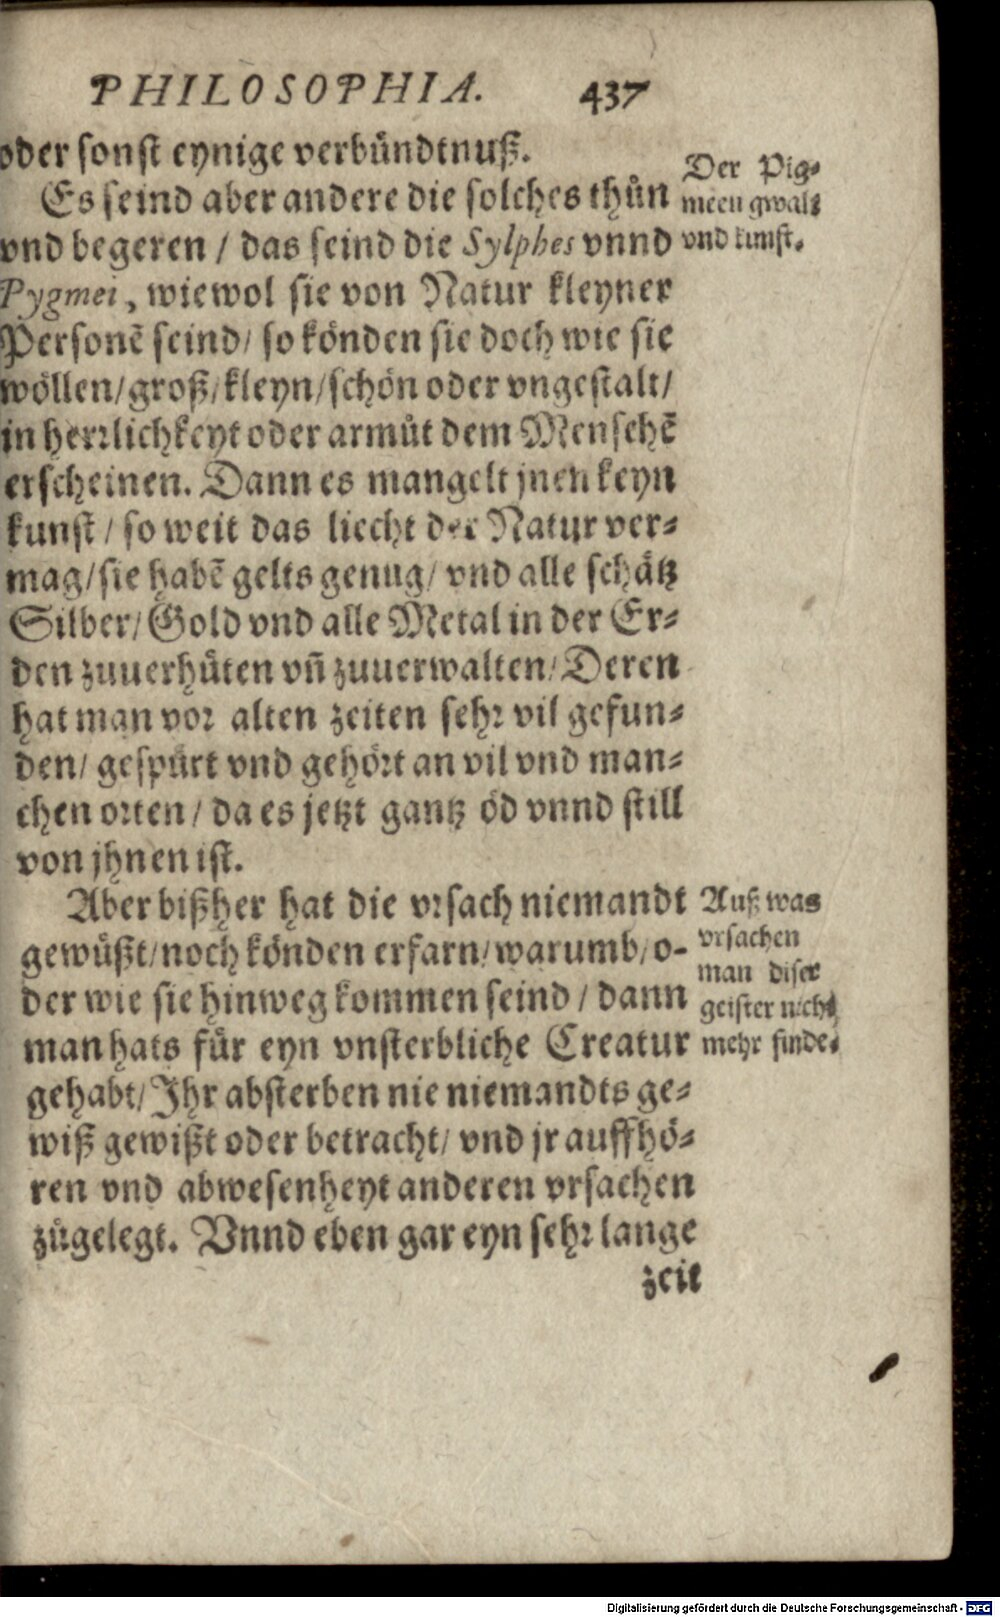 PHILOSOPHIA. 437
oder sonst eynige verbündtnuß.
Es seind aber andere die solches thůn
vnd begeren / das seind die Sylphes vnnd
Pygmei, wiewol sie von Natur kleyner
Personẽ seind/ so könden sie doch wie sie
wöllen/groß/kleyn/schön oder vngestalt/
in herrlichkeyt oder armůt dem Menschẽ
erscheinen. Dann es mangelt jnen keyn
kunst / so weit das liecht der Natur ver⸗
mag/sie habẽ gelts genug/ vnd alle schätz
Silber/Gold vnd alle Metal in der Er⸗
den zuuerhüten vñ zuuerwalten/Deren
hat man vor alten zeiten sehr vil gefun⸗
den/ gespürt vnd gehört an vil vnd man⸗
chen orten / da es jetzt gantz öd vnnd still
von jhnen ist.
Aber bißher hat die vrsach niemandt
gewüßt/noch könden erfarn/warumb/o-
der wie sie hinweg kommen seind / dann
man hats für eyn vnsterbliche Creatur
gehabt/Jhr absterben nie niemandts ge⸗
wiß gewißt oder betracht/ vnd jr auffhö⸗
ren vnd abwesenheyt anderen vrsachen
zůgelegt. Vnnd eben gar eyn sehr lange
zeit
Der Pig⸗
meen gwalt
vnd kunst.
Auß was
vrsachen
man diser
geister nicht
mehr finde.
Digitalisierung gefördert durch die Deutsche Forschungsgemeinschaft - DFG